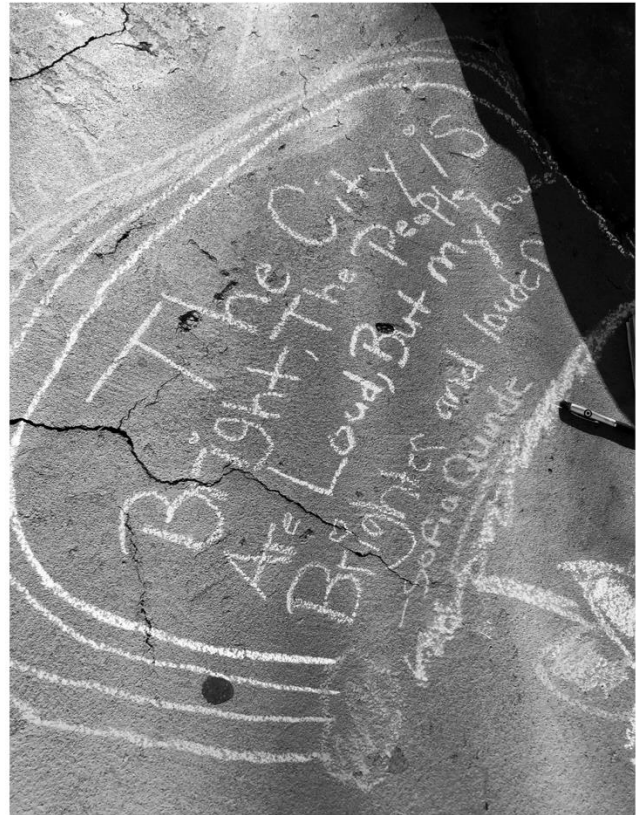 The City is
Bright, The People
Are Loud, But my house
Brighter and louder
-Sofia Quinde